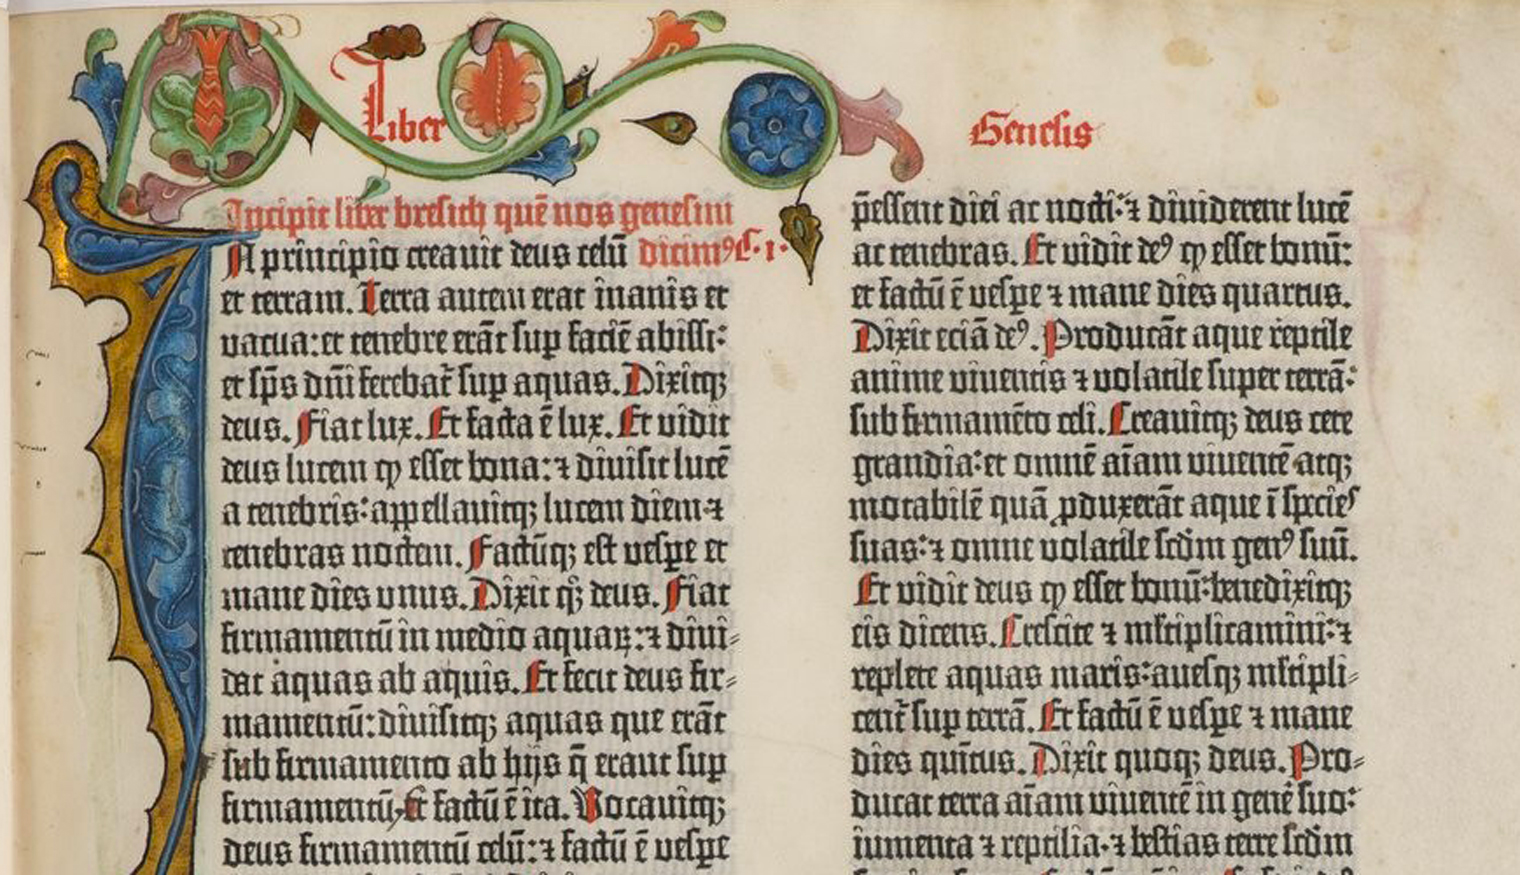 Liber
Genesis
Incipit liber bresich quē nos genesim
A principio creauit deus celū dicimꝰ C. i.
et terram. Terra autem erat inanis et
vacua: et tenebre erāt sup faciē abissi:
et sp̄s dn̄i ferebat᷑ sup aquas. Dixitqꝫ
deus. Fiat lux. Et facta ē lux. Et vidit
deus lucem ꝙ esset bona: ⁊ diuisit lucē
a tenebris: appellauitqꝫ lucem diem ⁊
tenebras noctem. Factūqꝫ est vespe et
mane dies vnus. Dixit qꝫ deus. Fiat
firmamentū in medio aquaꝝ: ⁊ diui-
dat aquas ab aquis. Et fecit deus fir-
mamentū: diuisitqꝫ aquas que erāt
sub firmamento ab hijs q̄ erant sup
firmamentū, Et factū ē ita. Vocauitqꝫ
deus firmamentū celū: ⁊ factū ē vespe
p̄essent diei ac nocti: ⁊ diuiderent lucē
ac tenebras. Et vidit deꝰ ꝙ esset bonū:
et factū ē vespe ⁊ mane dies quartus.
Dixit eciā deꝰ. Producāt aque reptile
anime viuentis ⁊ volatile super terrā:
sub firmamēto celi. Creauitqꝫ deus cete
grandia: et omnē aīam viuentē atqꝫ
motabilē quā ꝓduxerāt aque ī species
suas: ⁊ omne volatile scd̄m genꝰ suū.
Et vidit deus ꝙ esset bonū: benedixitqꝫ
eis dicens. Crescite ⁊ ml̄tiplicamini: ⁊
replete aquas maris: auesqꝫ ml̄tipli-
cent᷑ sup terrā. Et factū ē vespe ⁊ mane
dies quītus. Dixit quoqꝫ deus. Pro-
ducat terra aīam viuentē in genē suo:
iumenta ⁊ reptilia. ⁊ bestias terre scd̄m